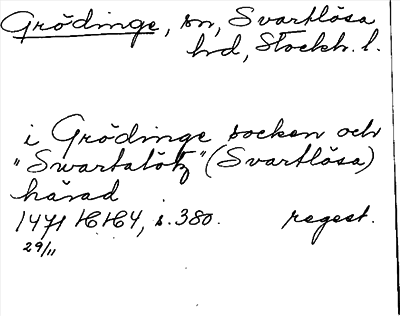 Grödinge, sn, Svartlösa
hd, Stockh. l.
i Grödinge socken och
"Swartalötz" (Svartlösa)
härad
1471 HH4, s. 380. regest.
29/11